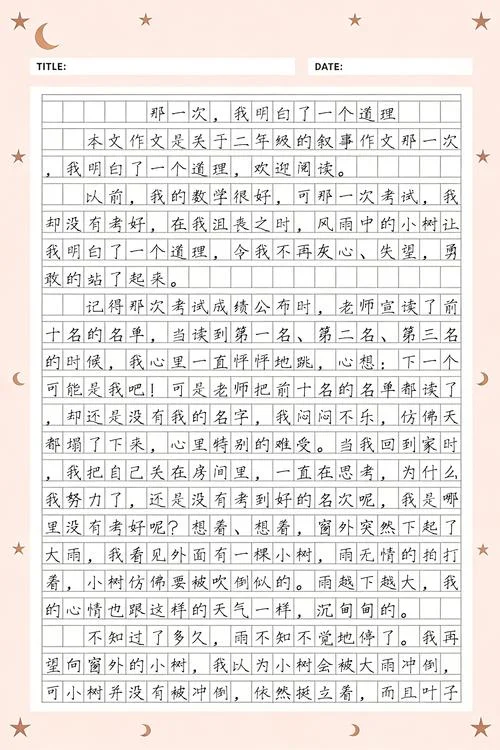 TITLE:
DATE:
那一次，我明白了一个道理
本文作文是关于二年级的叙事作文那一次
，我明白了一个道理，欢迎阅读。
以前，我的数学很好，可那一次考试，我
却没有考好，在我沮丧之时，风雨中的小树让
我明白了一个道理，令我不再灰心、失望，勇
敢的站了起来。
记得那次考试成绩公布时，老师宣读了前
十名的名单，当读到第一名、第二名、第三名
的时候，我心里一直怦怦地跳，心想：下一个
可能是我吧！可是老师把前十名的名单都读了
，却还是没有我的名字，我闷闷不乐，仿佛天
都塌了下来，心里特别的难受。当我回到家时
，我把自己关在房间里，一直在思考，为什么
我努力了，还是没有考到好的名次呢，我是哪
里没有考好呢？想着、想着，窗外突然下起了
大雨，我看见外面有一棵小树，雨无情的拍打
着，小树仿佛要被吹倒似的。雨越下越大，我
的心情也跟这样的天气一样，沉甸甸的。
不知过了多久，雨不知不觉地停了。我再
望向窗外的小树，我以为小树会被大雨冲倒，
可小树并没有被冲倒，依然挺立着，而且叶子